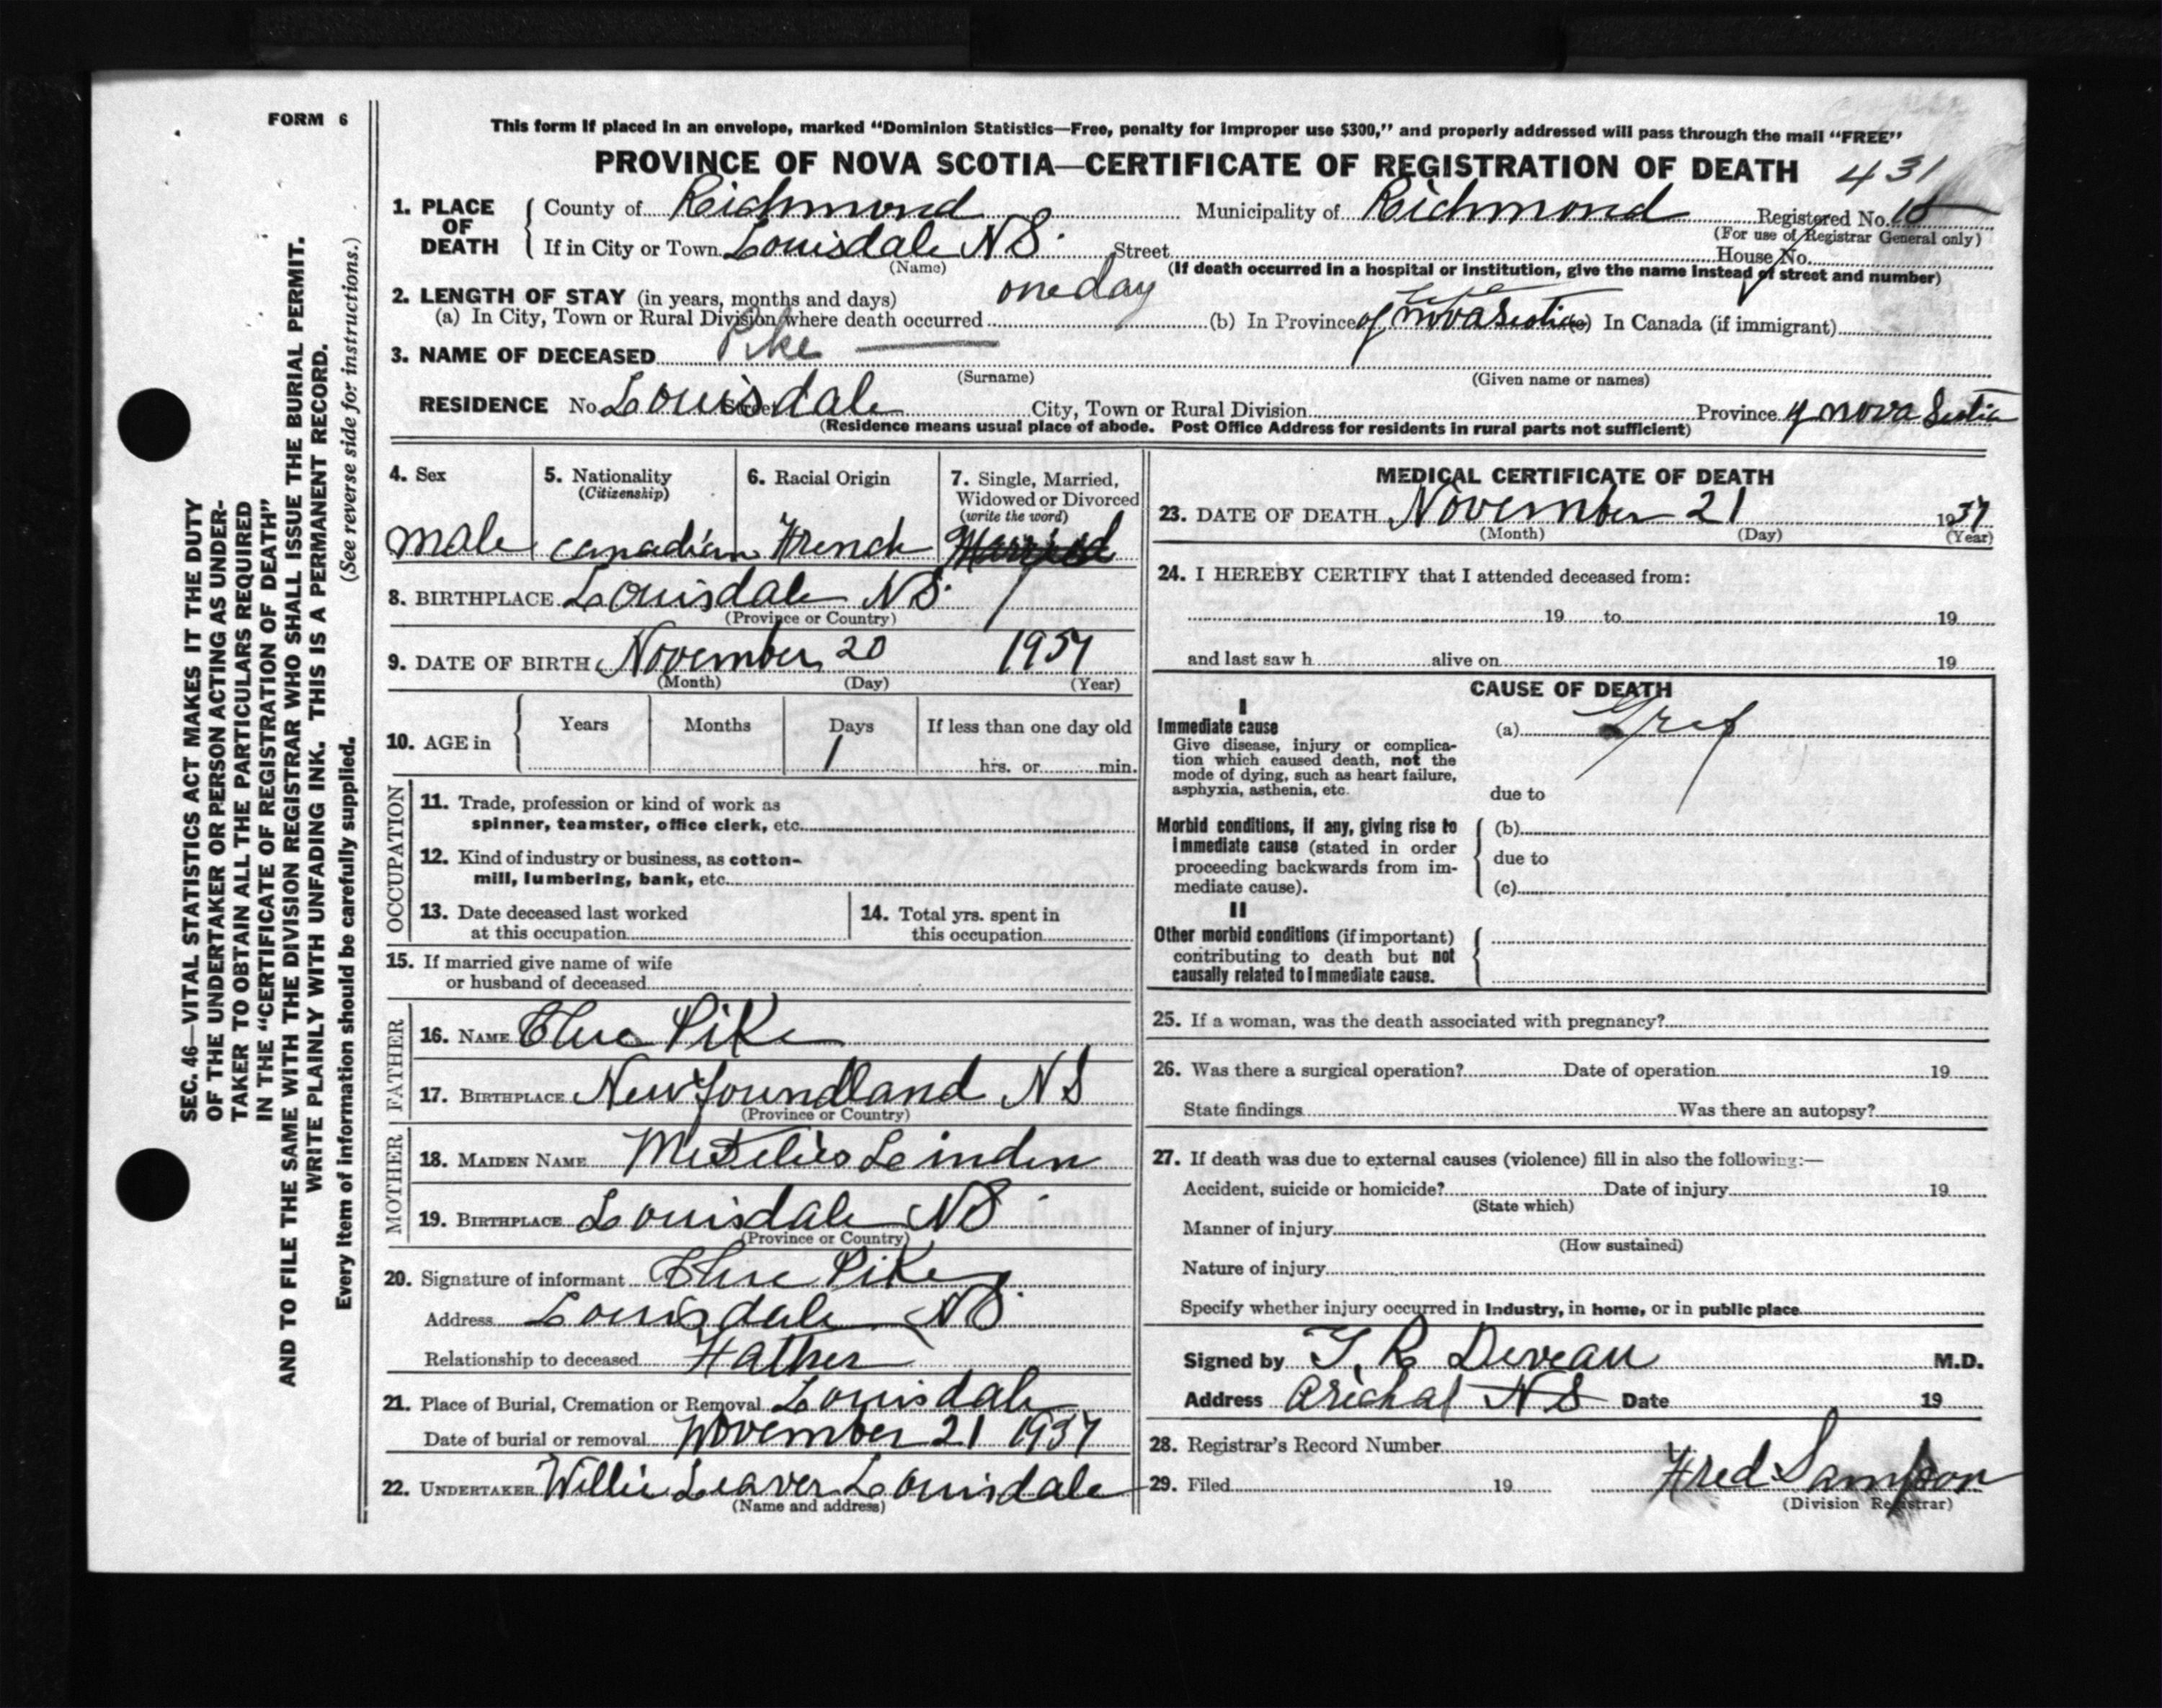 FORM 6
This form if placed in an envelope, marked “Dominion Statistics—Free, penalty for improper use $300,” and properly addressed will pass through the mail “FREE”
PROVINCE OF NOVA SCOTIA—CERTIFICATE OF REGISTRATION OF DEATH 431
1. PLACE OF DEATH
County of Richmond Municipality of Richmond Registered No.
(For use of Registrar General only)
If in City or Town Louisdale NS. Street House No.
(Name) (If death occurred in a hospital or institution, give the name instead of street and number)
2. LENGTH OF STAY (in years, months and days) one day life
(a) In City, Town or Rural Division where death occurred (b) In Province of Nova Scotia (c) In Canada (if immigrant)
3. NAME OF DECEASED Pike —
(Surname) (Given name or names)
RESIDENCE No. Street Louisdale City, Town or Rural Division Province of nova Scotia
(Residence means usual place of abode. Post Office Address for residents in rural parts not sufficient)
4. Sex
male
5. Nationality
(Citizenship)
Canadian
6. Racial Origin
French
7. Single, Married,
Widowed or Divorced
(write the word)
Married
8. BIRTHPLACE Louisdale NS.
(Province or Country)
9. DATE OF BIRTH November 20 1937
(Month) (Day) (Year)
10. AGE in Years Months Days If less than one day old
1 hrs. or min.
OCCUPATION
11. Trade, profession or kind of work as
spinner, teamster, office clerk, etc.
12. Kind of industry or business, as cotton-
mill, lumbering, bank, etc.
13. Date deceased last worked
at this occupation
14. Total yrs. spent in
this occupation
15. If married give name of wife
or husband of deceased
FATHER
16. NAME Pike
17. BIRTHPLACE Newfoundland NS
(Province or Country)
MOTHER
18. MAIDEN NAME
19. BIRTHPLACE Louisdale NS.
(Province or Country)
20. Signature of informant Pike
Address Louisdale NS.
Relationship to deceased Father
21. Place of Burial, Cremation or Removal Louisdale
Date of burial or removal November 21 1937
22. UNDERTAKER Willie Leaver Louisdale
(Name and address)
MEDICAL CERTIFICATE OF DEATH
23. DATE OF DEATH November 21 1937
(Month) (Day) (Year)
24. I HEREBY CERTIFY that I attended deceased from:
19 to 19
and last saw h alive on 19
CAUSE OF DEATH
I
Immediate cause
Give disease, injury or complica-
tion which caused death, not the
mode of dying, such as heart failure,
asphyxia, asthenia, etc.
(a)
due to
Morbid conditions, if any, giving rise to
immediate cause (stated in order
proceeding backwards from im-
mediate cause).
(b)
due to
(c)
II
Other morbid conditions (if important)
contributing to death but not
causally related to immediate cause.
25. If a woman, was the death associated with pregnancy?
26. Was there a surgical operation? Date of operation 19
State findings Was there an autopsy?
27. If death was due to external causes (violence) fill in also the following:—
Accident, suicide or homicide? Date of injury 19
(State which)
Manner of injury
(How sustained)
Nature of injury
Specify whether injury occurred in industry, in home, or in public place
Signed by T. R Deveau M.D.
Address Arichat NS Date 19
28. Registrar's Record Number
29. Filed 19 Fred Sampson
(Division Registrar)
SEC. 46—VITAL STATISTICS ACT MAKES IT THE DUTY
OF THE UNDERTAKER OR PERSON ACTING AS UNDER-
TAKER TO OBTAIN ALL THE PARTICULARS REQUIRED
IN THE “CERTIFICATE OF REGISTRATION OF DEATH”
AND TO FILE THE SAME WITH THE DIVISION REGISTRAR WHO SHALL ISSUE THE BURIAL PERMIT.
WRITE PLAINLY WITH UNFADING INK. THIS IS A PERMANENT RECORD.
Every item of information should be carefully supplied. (See reverse side for instructions.)